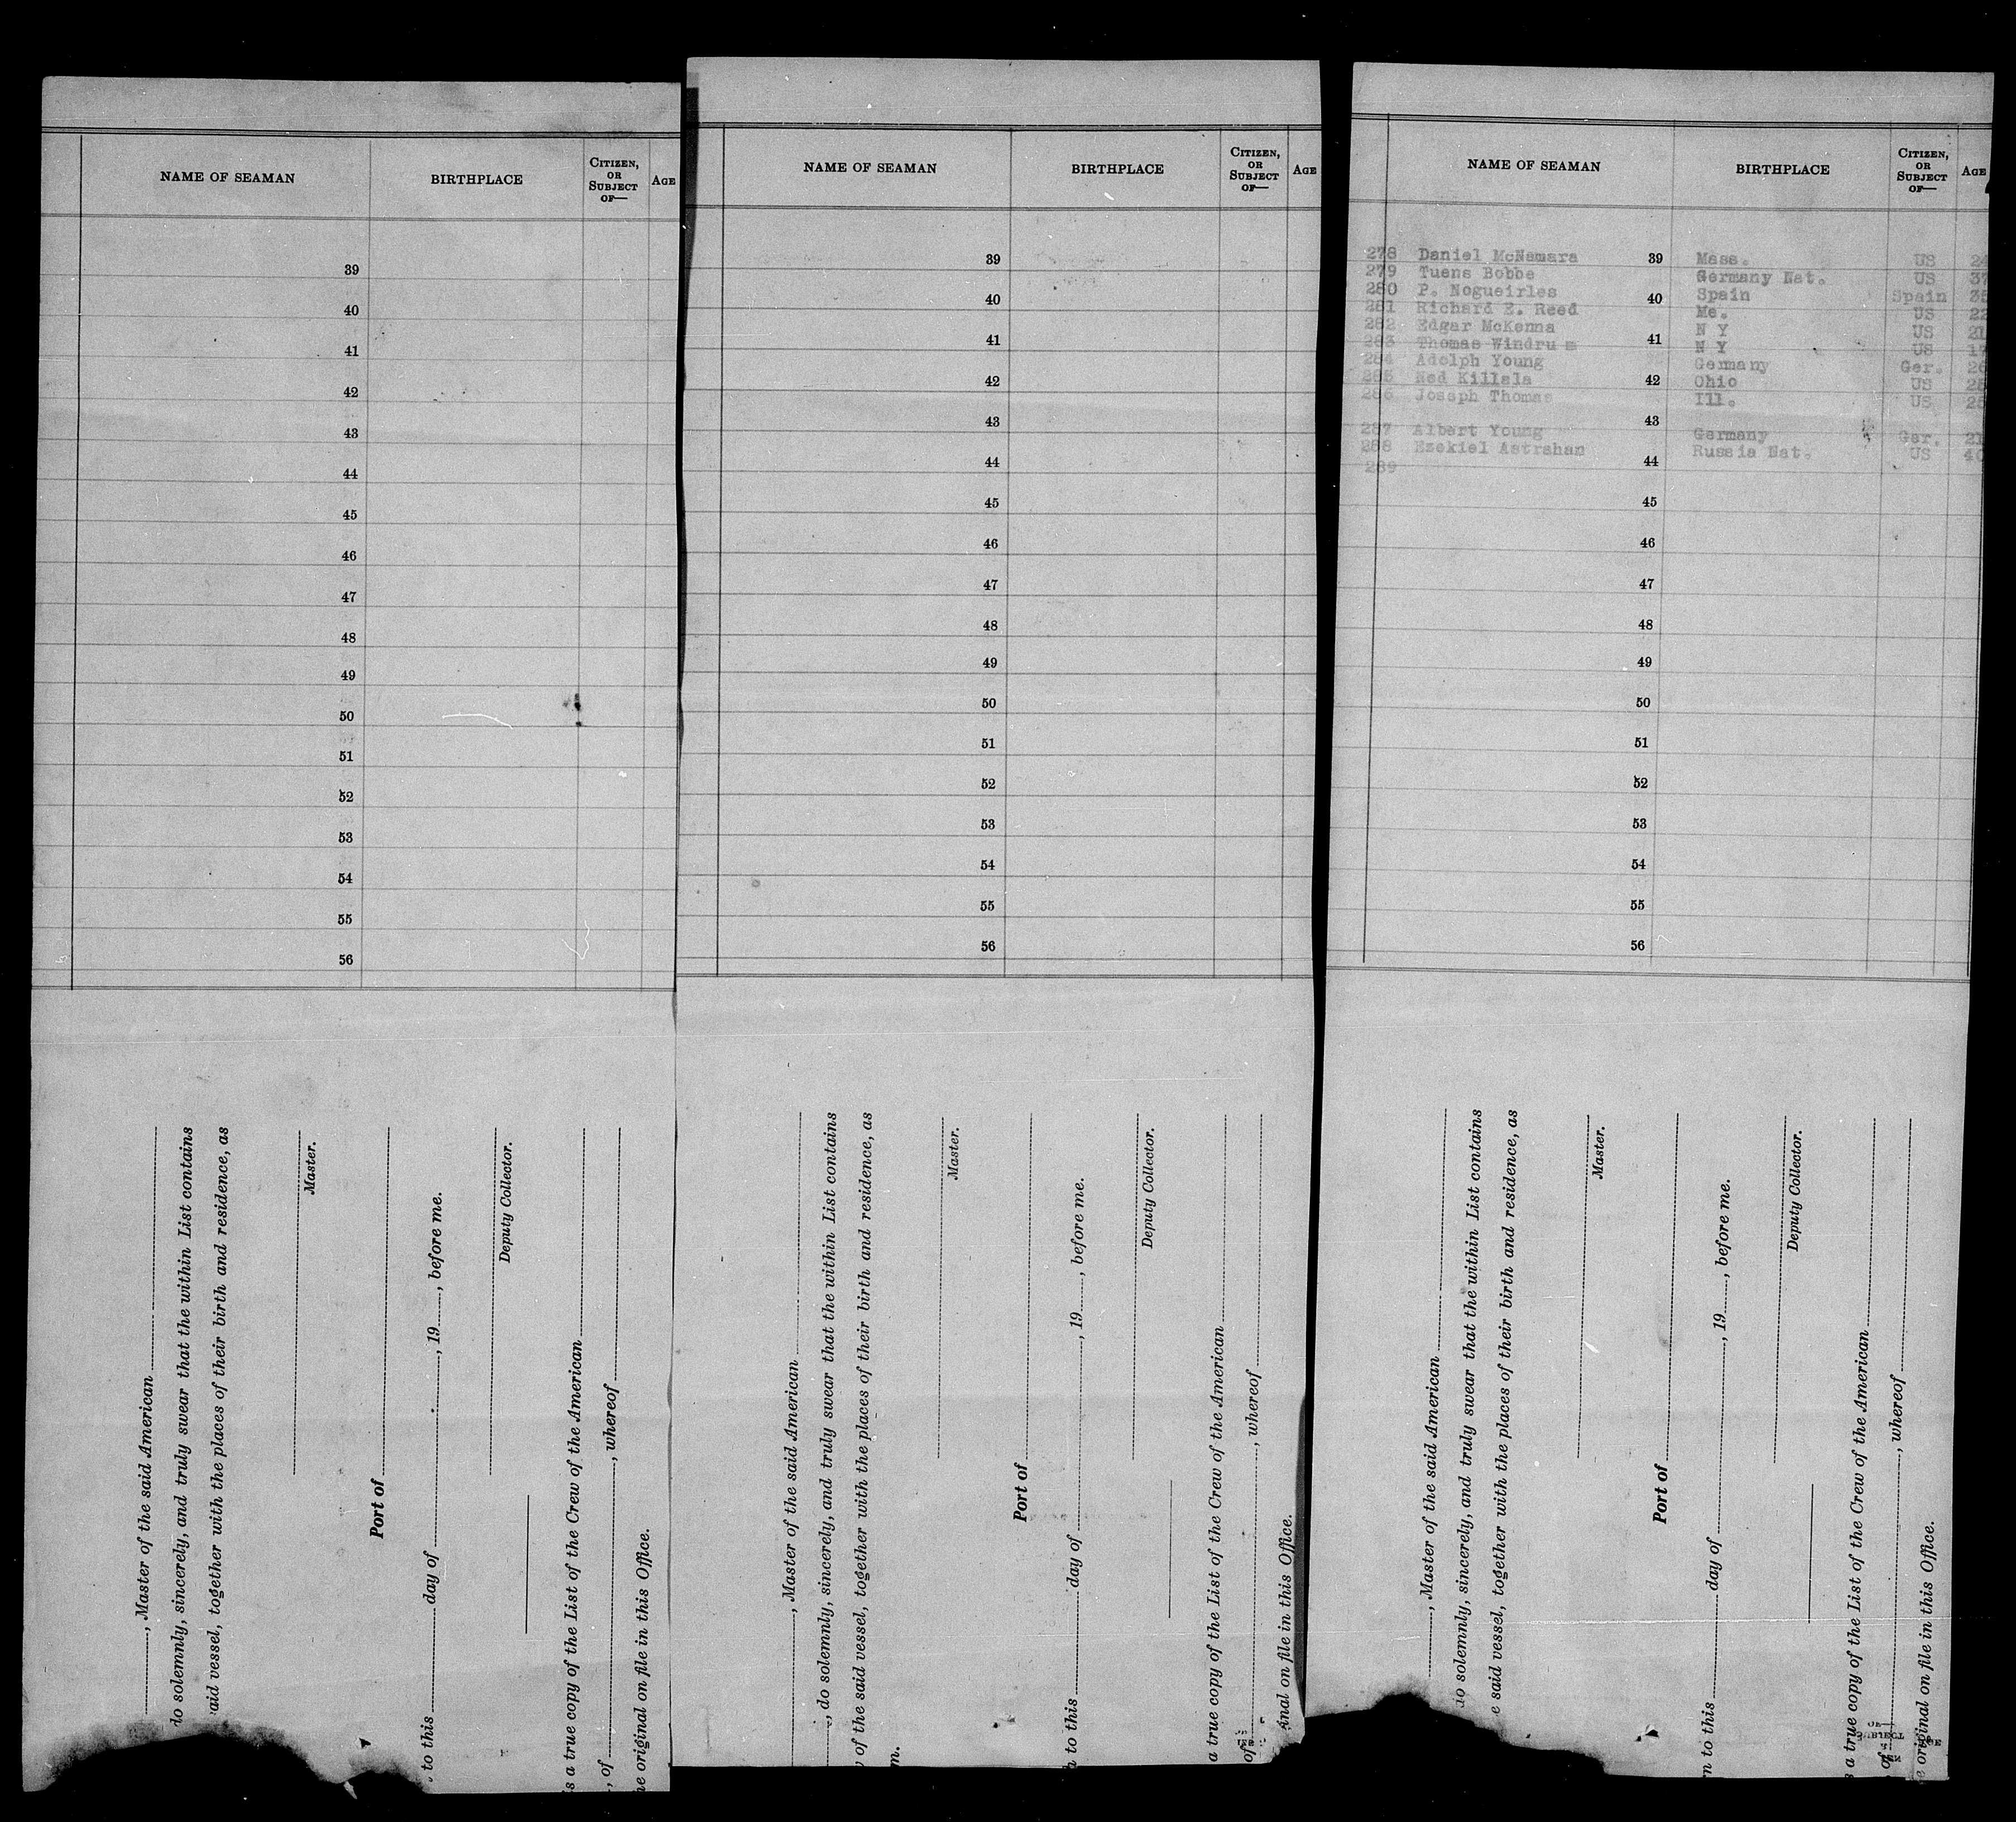 NAME OF SEAMAN BIRTHPLACE CITIZEN, OR SUBJECT OF— AGE
39
40
41
42
43
44
45
46
47
48
49
50
51
52
53
54
55
56
, Master of the said American
do solemnly, sincerely, and truly swear that the within List contains
said vessel, together with the places of their birth and residence, as
Master.
Port of
to this day of , 19 , before me.
Deputy Collector.
s a true copy of the List of the Crew of the American
, of , whereof
he original on file in this Office.
NAME OF SEAMAN BIRTHPLACE CITIZEN, OR SUBJECT OF— AGE
39
40
41
42
43
44
45
46
47
48
49
50
51
52
53
54
55
56
, Master of the said American
, do solemnly, sincerely, and truly swear that the within List contains
of the said vessel, together with the places of their birth and residence, as
m.
Master.
Port of
n to this day of , 19 , before me.
Deputy Collector.
a true copy of the List of the Crew of the American
of , whereof
inal on file in this Office.
NAME OF SEAMAN BIRTHPLACE CITIZEN, OR SUBJECT OF— AGE
278 Daniel McNamara 39 Mass. US 24
279 Tuens Bobbe Germany Nat. US 37
280 P. Nogueirles 40 Spain Spain 35
281 Richard E. Reed Me. US 22
282 Edgar McKenna N Y US 21
283 Thomas Windru m 41 N Y US 17
284 Adolph Young Germany Ger. 26
285 Ned Killela 42 Ohio US 25
286 Joseph Thomas Ill. US 25
43
287 Albert Young Germany Ger. 21
288 Ezekiel Astrahan 44 Russia Nat. US 40
289
45
46
47
48
49
50
51
52
53
54
55
56
, Master of the said American
do solemnly, sincerely, and truly swear that the within List contains
e said vessel, together with the places of their birth and residence, as
Master.
Port of
rn to this day of , 19 , before me.
Deputy Collector.
s a true copy of the List of the Crew of the American
of , whereof
e original on file in this Office.